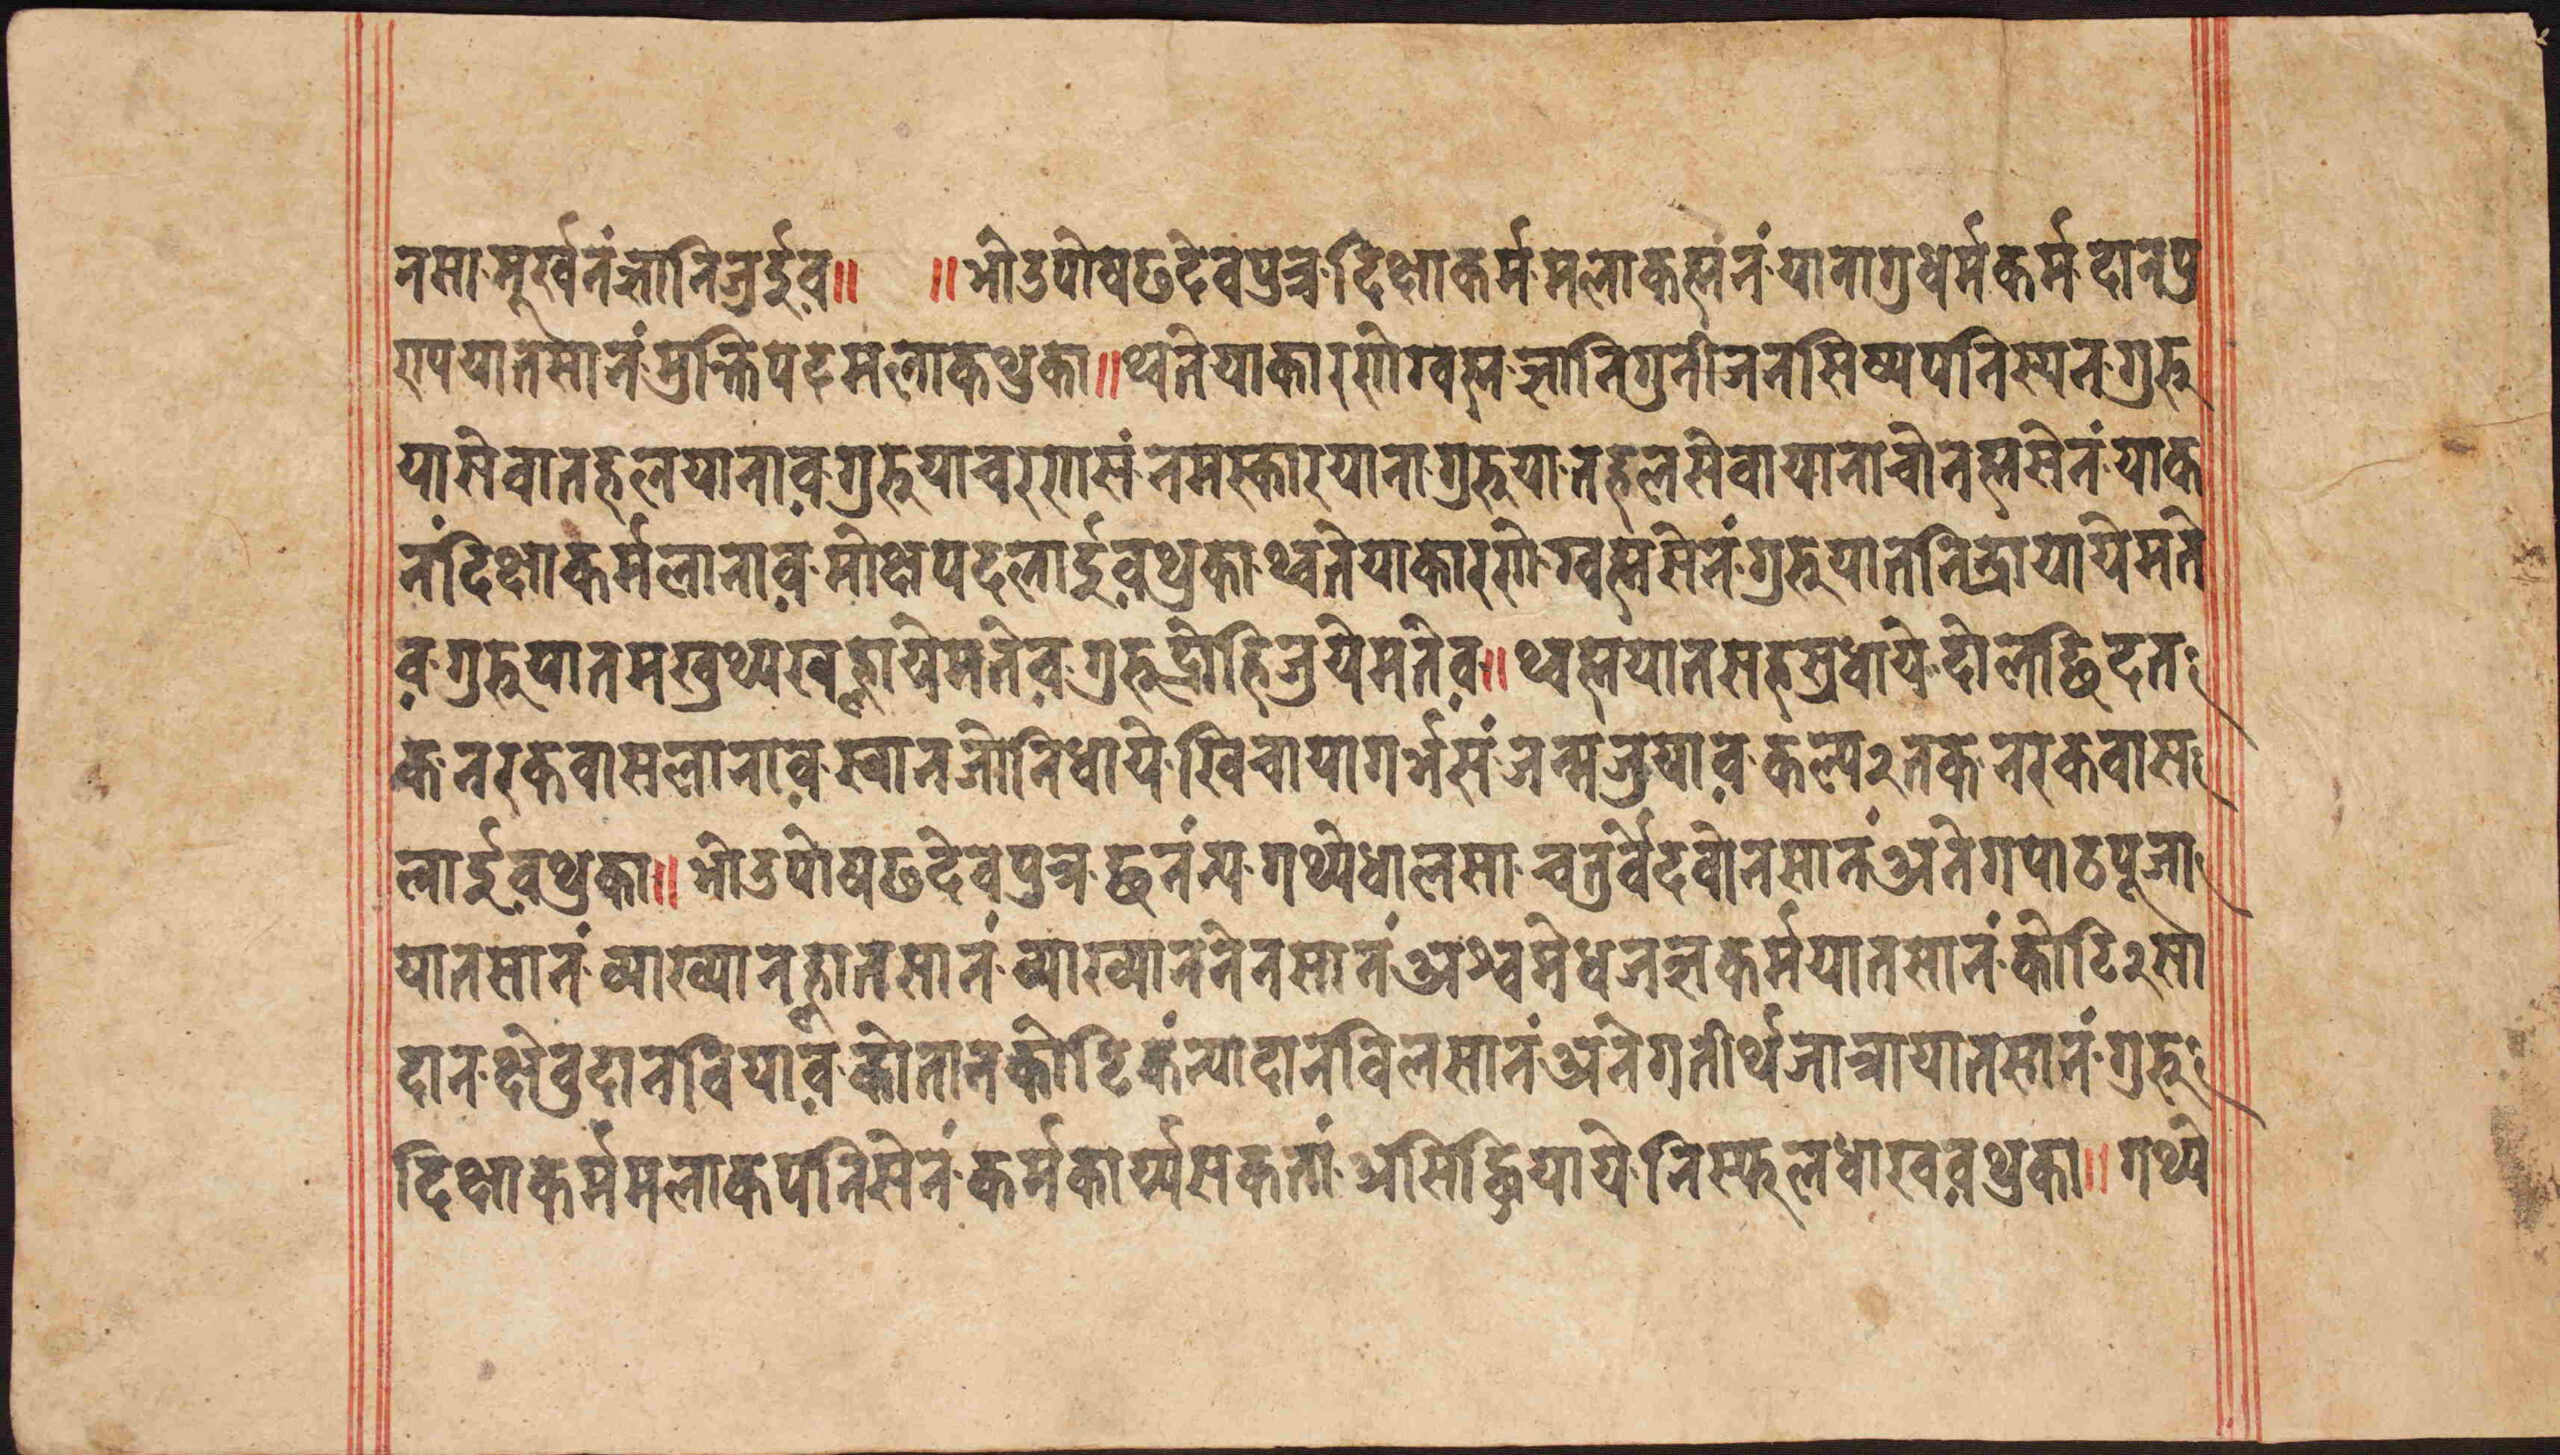 नसा मूर्खनं ज्ञानि जुईव॒॥ ॥भो उपोषढ देवपुत्र दिक्षाकर्म मलाकह्मनं याना गु धर्मकर्म दानपु
राण यातसानं मुक्तिपद मलाक थुका॥थ्वतेया कारणे ग्वह्म ज्ञानि गुनीजन सिष्यपनिस्यन गुरु
या सेवा तहल यानाव॒ गुरुया चरणसं नमस्कार याना गुरुया तहल सेवा याना चोनह्मसेनं याक
नं दिक्षाकर्म लानाव॒ मोक्षपद लाईव॒ थुका थ्वतेया कारणे ग्वह्मसेनं गुरुयात निन्द्रा यायेमते
व॒ गुरुयात मखुथ्य खँ ह्लायेमतेव॒ गुरुद्रोहि जुयेमतेव॒॥ थ्वह्मयात सहस्र धाये दोलछि दत
क नरकवास लानाव॒ स्वानजोनि धाये खिचाया गर्भसं जन्म जुयाव॒ कल्प२तक नरकवास
लाईव॒ थुका॥ भो उपोषढ देवपुत्र छनं न्य गथ्ये धालसा चतुर्वेद वोनसानं अनेग पाठ पूजा
यातसानं व्याख्यान ह्लातसानं व्याख्यान नेनसानं अश्वमेध जज्ञकर्म यातसानं कोटि२ सा
दान क्षेवुदान वियाव॒ कोतान कोटि कंन्यादान विलसानं अनेग तीर्थ जात्रा यातसानं गुरु
दिक्षाकर्म मलाकपनिसेनं कर्मकार्य्य सकतां असिद्धि याये निस्फल धाखव॒ थुका॥ गथ्ये